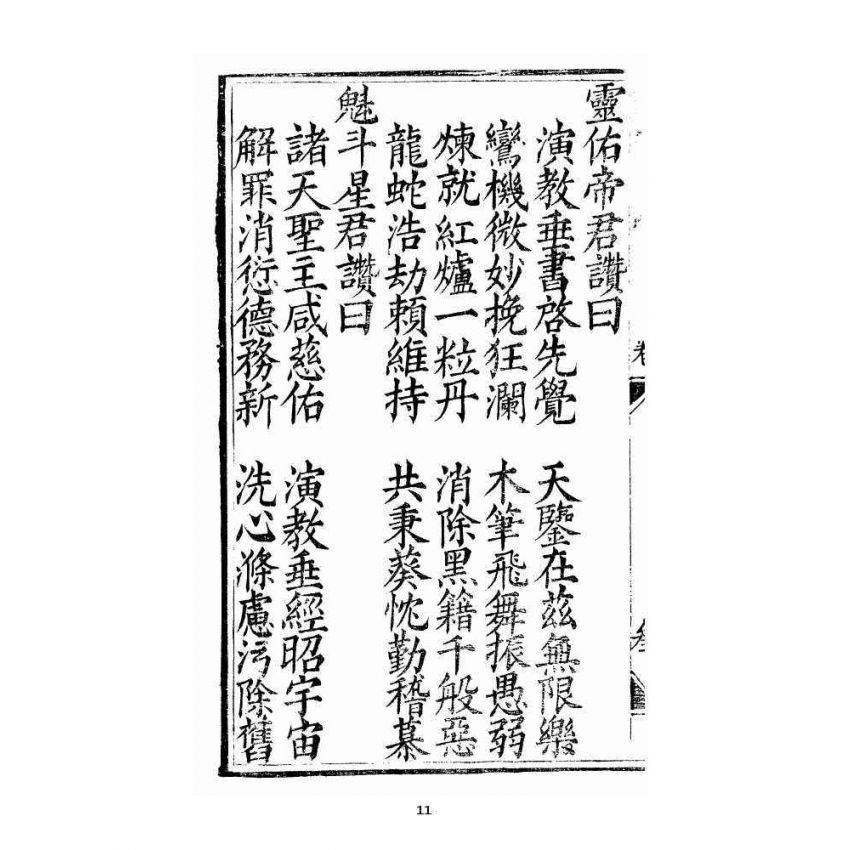 靈佑帝君讚曰
演教垂書啓先覺 天鑒在茲無限樂
鸞機微妙挽狂瀾 木筆飛舞振愚弱
煉就紅爐一粒丹 消除黑籍千般惡
龍蛇浩劫賴維持 共秉葵忱勤稽慕
魁斗星君讚曰
諸天聖主咸慈佑 演教垂經昭宇宙
解罪消愆德務新 洗心滌慮污除舊
11